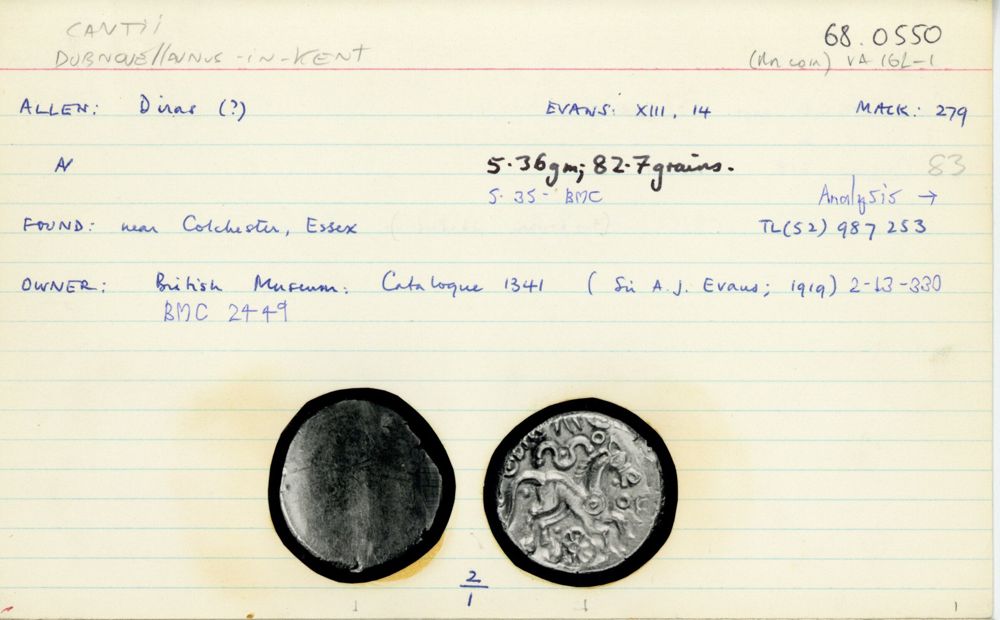 CANTII
DUBNOVELLAUNUS-IN-KENT
68.0550
(Un coin) VA 162-1
ALLEN: Diras (?) EVANS: XIII, 14 MACK: 279
AV
5.36gm; 82.7grains.
83
5.35- BMC
Analysis →
FOUND: near Colchester, Essex TL(52) 987 253
OWNER: British Museum: Catalogue 1341 (Sir A.J. Evans; 1919) 2-13-330
BMC 2449
2
1